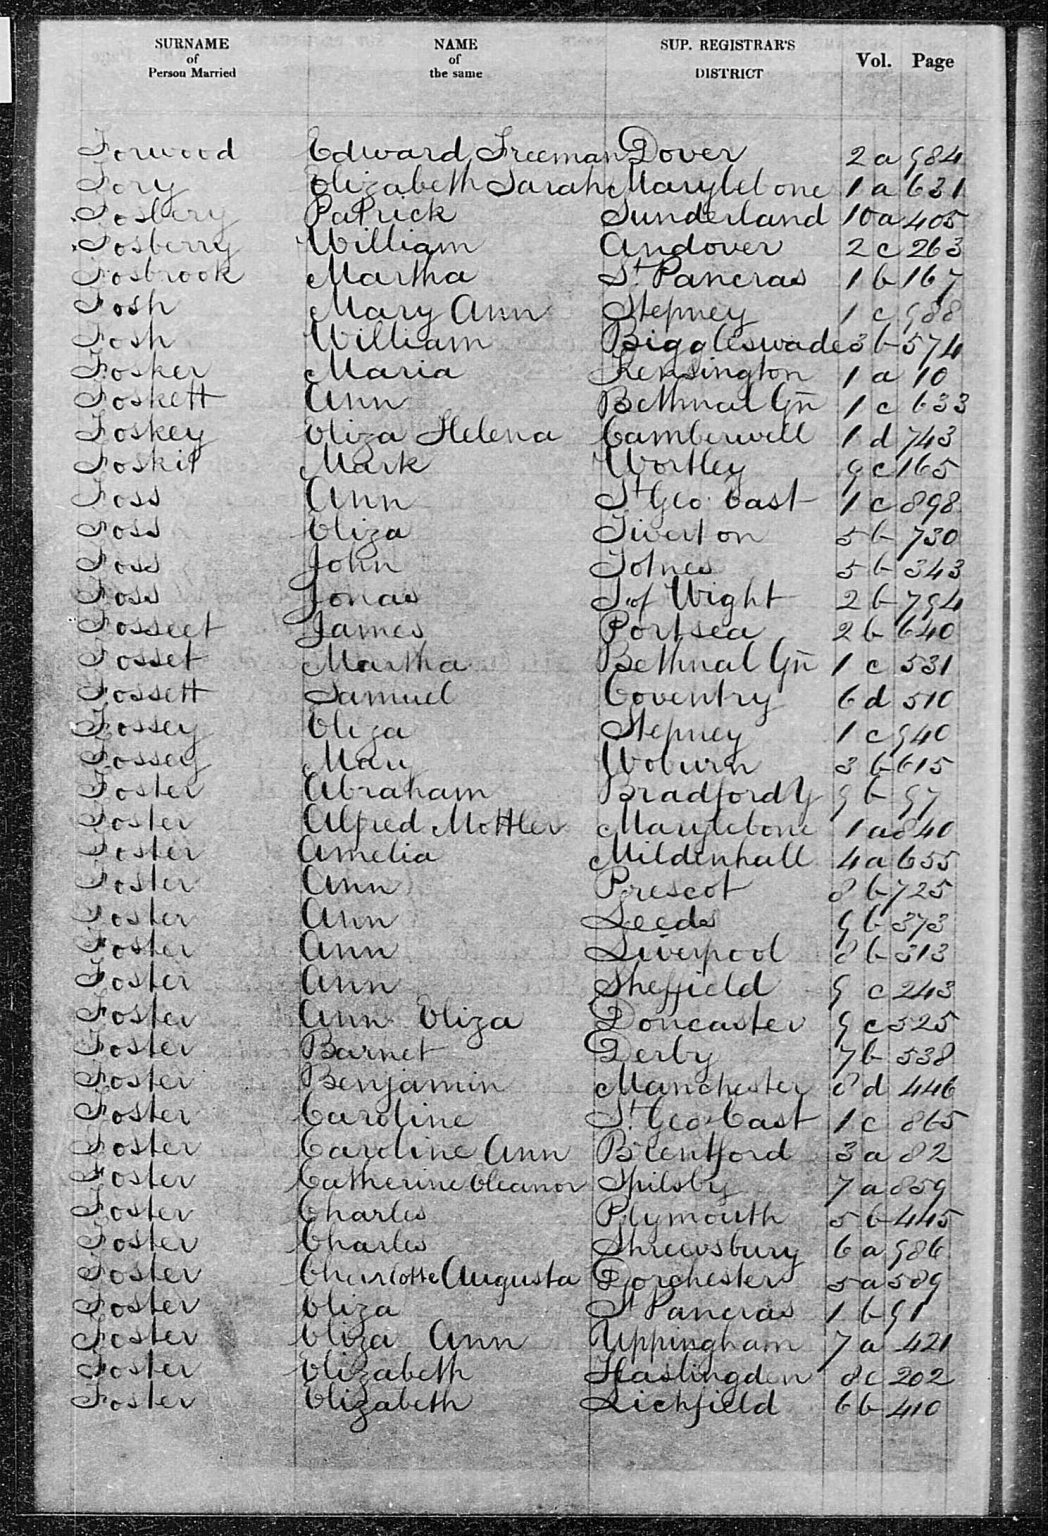 SURNAME of Person Married NAME of the same SUP. REGISTRAR'S DISTRICT Vol. Page
Forwood Edward Freeman Dover 2 a 984
Fory Elizabeth Sarah Marylebone 1 a 631
Fosbery Patrick Sunderland 10 a 405
Fosberry William Andover 2 c 263
Fosbrook Martha St. Pancras 1 b 167
Fosh Mary Ann Stepney 1 c 988
Fosh William Biggleswade 3 b 574
Fosker Maria Kensington 1 a 10
Foskett Ann Bethnal Gn 1 c 633
Foskey Eliza Helena Camberwell 1 d 743
Foskit Mark Wortley 9 c 165
Foss Ann St Geo East 1 c 898
Foss Eliza Tiverton 5 b 730
Foss John Totnes 5 b 343
Foss Jonas I. of Wight 2 b 794
Fosseet James Portsea 2 b 640
Fosset Martha Bethnal Gn 1 c 531
Fossett Samuel Coventry 6 d 510
Fossey Eliza Stepney 1 c 940
Fossey Mary Woburn 3 b 615
Foster Abraham Bradford Y 9 b 97
Foster Alfred Mottler Marylebone 1 a 840
Foster Amelia Mildenhall 4 a 655
Foster Ann Prescot 8 b 725
Foster Ann Leeds 9 b 373
Foster Ann Liverpool 8 b 313
Foster Ann Sheffield 9 c 243
Foster Ann Eliza Doncaster 9 c 525
Foster Barnet Derby 7 b 538
Foster Benjamin Manchester 8 d 446
Foster Caroline St. Geo. East 1 c 865
Foster Caroline Ann Brentford 3 a 82
Foster Catherine Eleanor Spilsby 7 a 859
Foster Charles Plymouth 5 b 445
Foster Charles Shrewsbury 6 a 986
Foster Charlotte Augusta Dorchester 5 a 589
Foster Eliza St Pancras 1 b 91
Foster Eliza Ann Uppingham 7 a 421
Foster Elizabeth Haslingden 8 c 202
Foster Elizabeth Lichfield 6 b 410